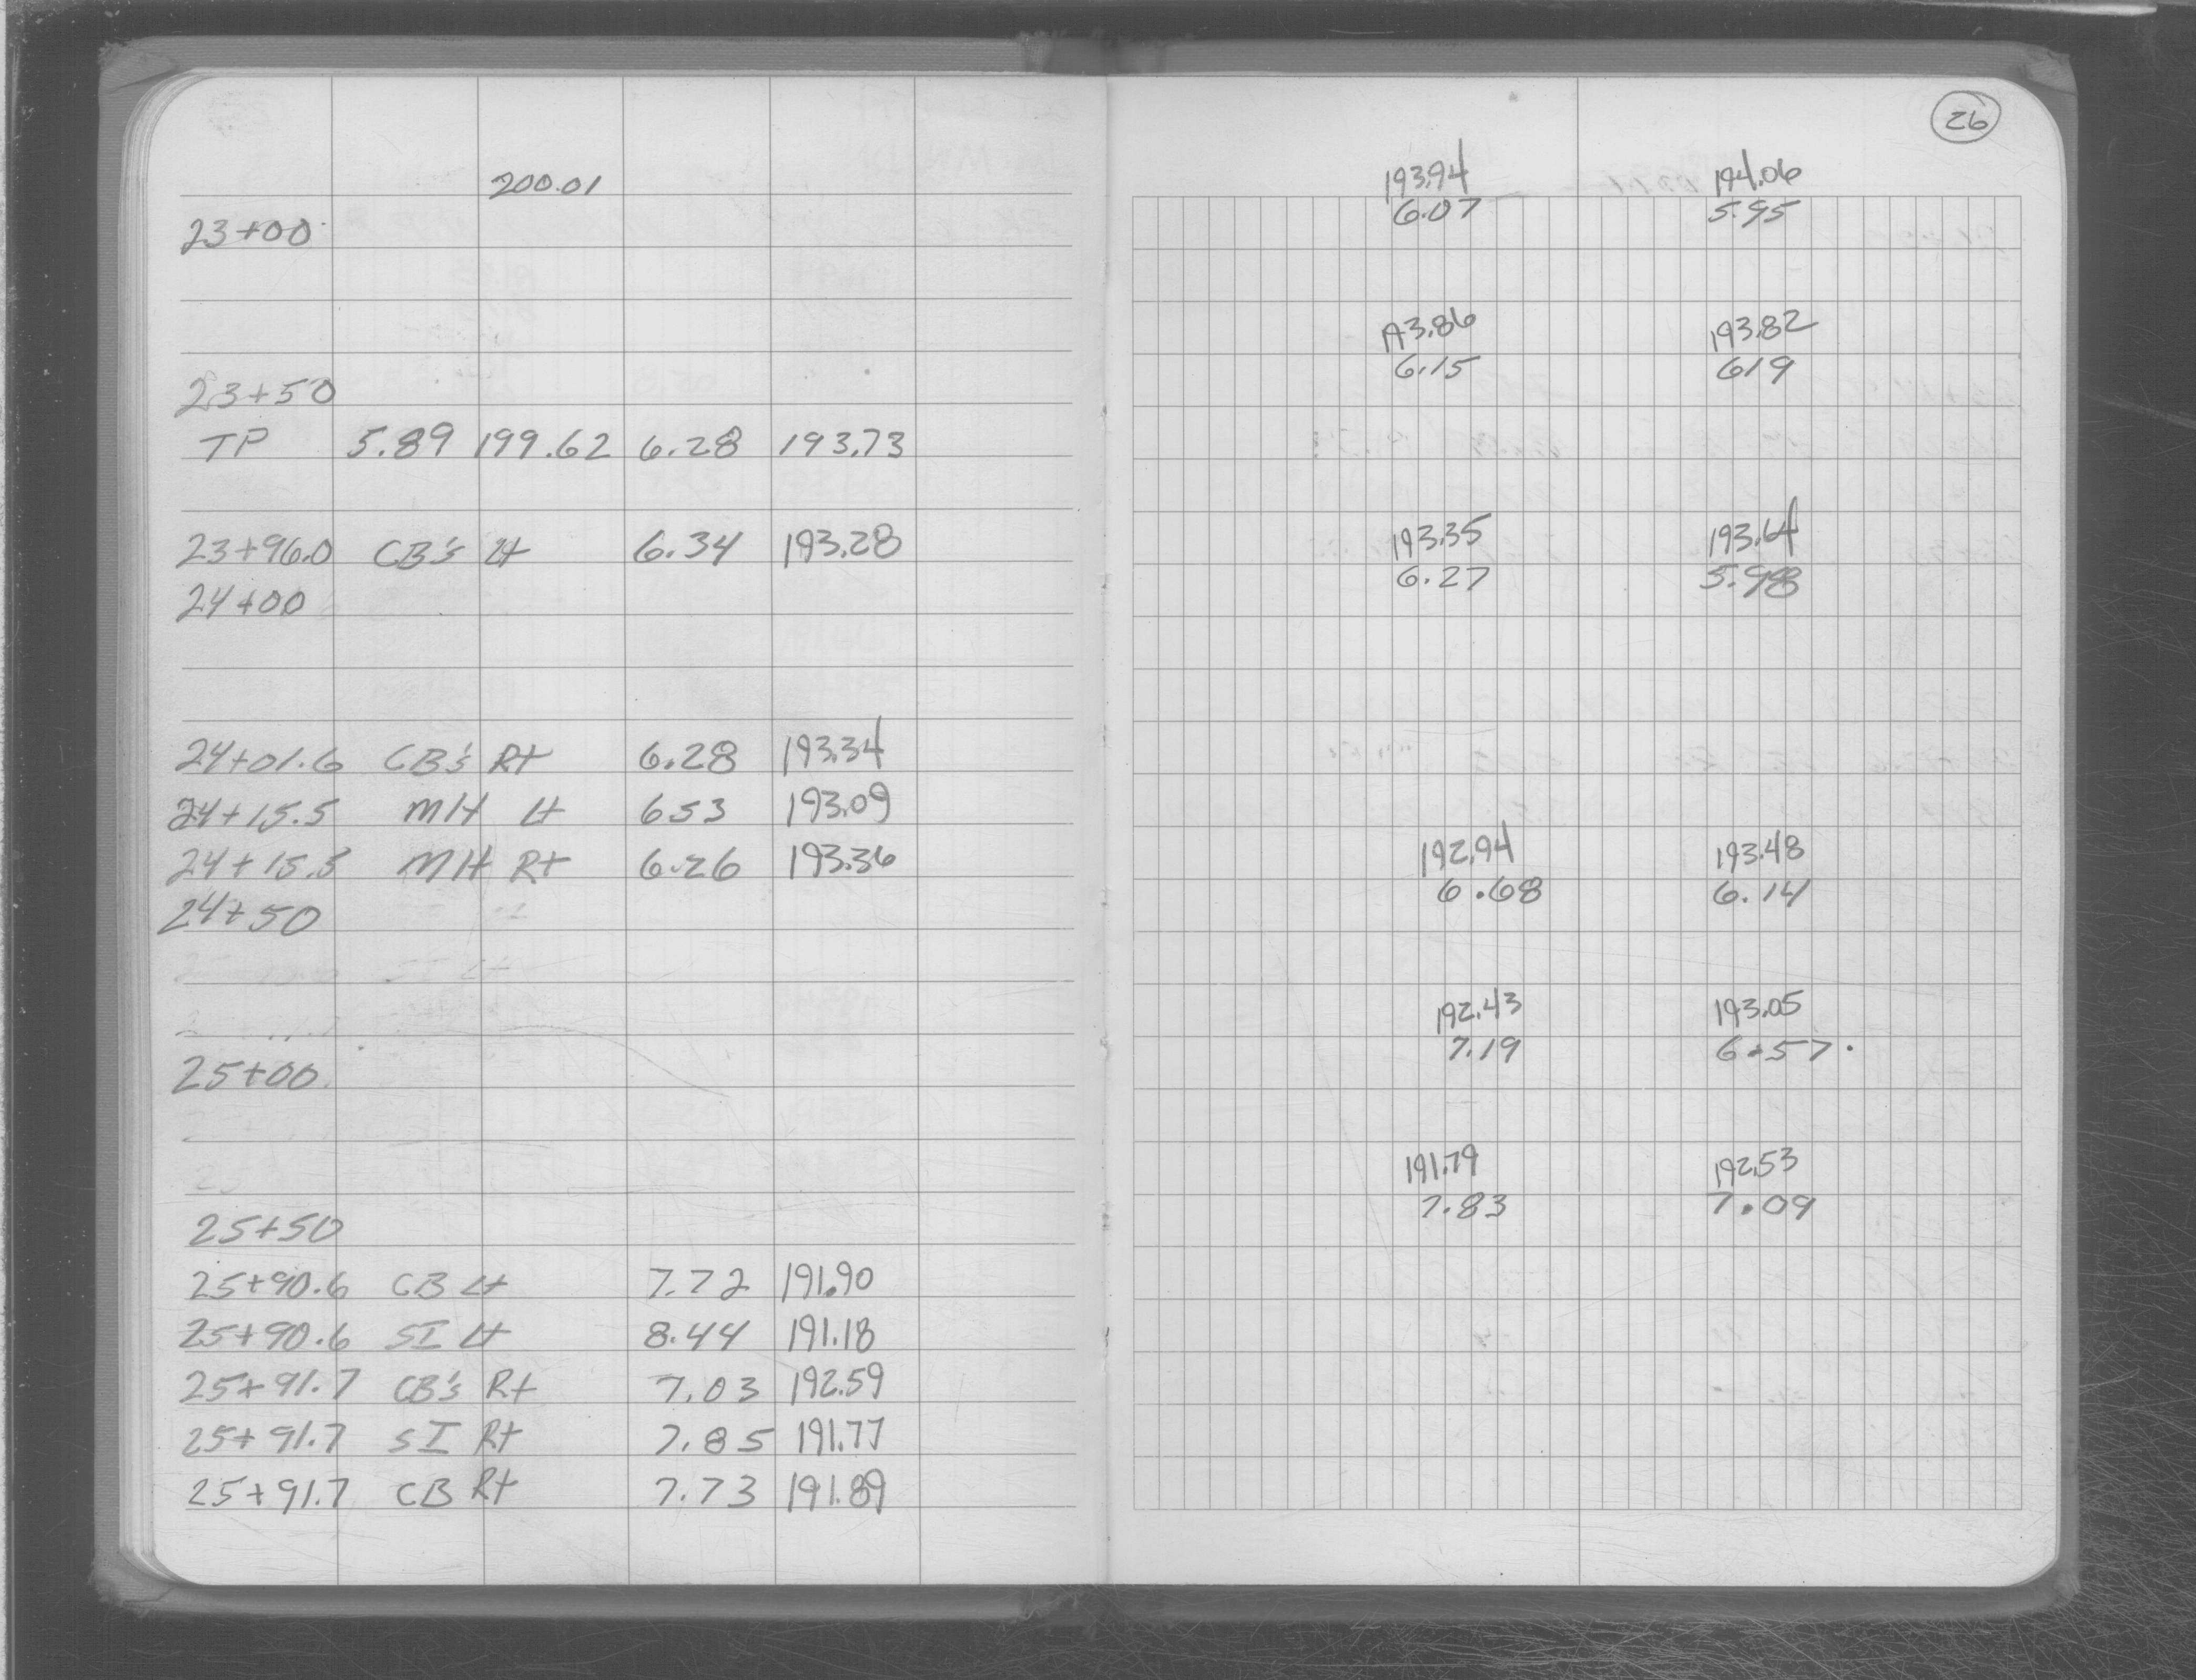 26
200.01 193.94 194.06
6.07 5.95
23+00
193.86 193.82
6.15 619
23+50
TP 5.89 199.62 6.28 193.73
23+96.0 CB's Lt 6.34 193.28 193.35 193.64
6.27 5.98
24+00
24+01.6 CB's Rt 6.28 193.34
24+15.5 MH Lt 653 193.09
24+15.5 MH Rt 6.26 193.36 192.94 193.48
6.68 6.14
24+50
SI Lt
192.43 193.05
7.19 6.57
25+00
191.79 192.53
7.83 7.09
25+50
25+90.6 CB Lt 7.72 191.90
25+90.6 SI Lt 8.44 191.18
25+91.7 CB's Rt 7.03 192.59
25+91.7 SI Rt 7.85 191.77
25+91.7 CB Rt 7.73 191.89